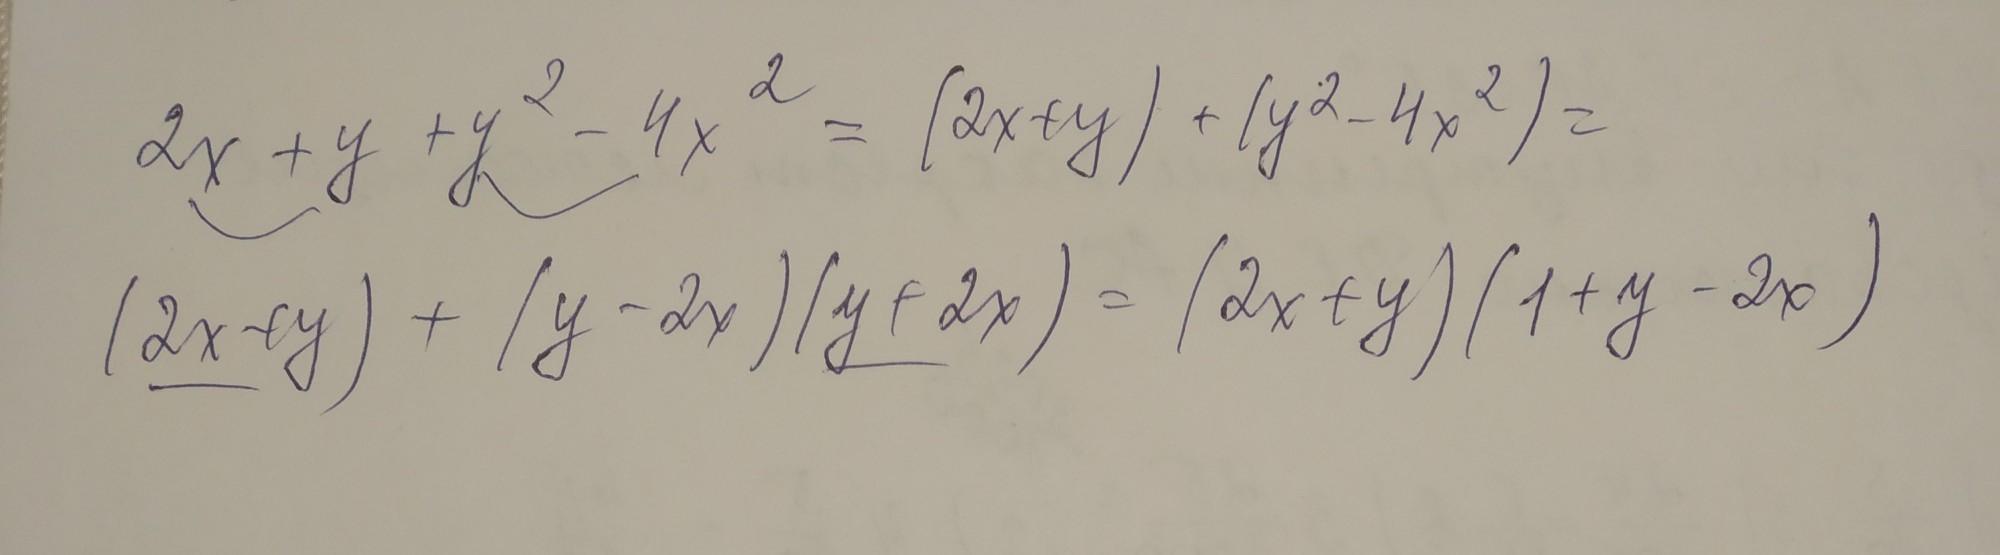 2x + y + y² - 4x² = (2x+y) + (y² - 4x²) =
(2x+y) + (y - 2x)(y + 2x) = (2x + y)(1 + y - 2x)